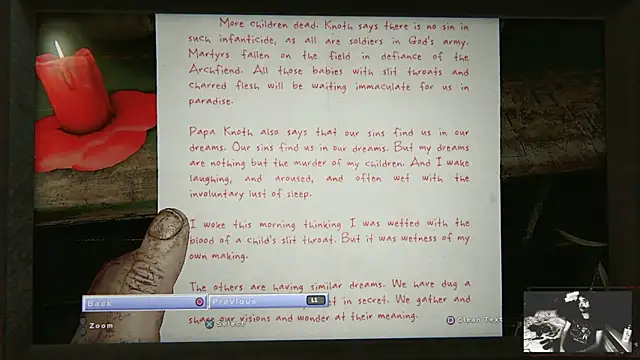 More children dead. Knoth says there is no sin in
such infanticide, as all are soldiers in God's army.
Martyrs fallen on the field in defiance of the
Archfiend. All those babies with slit throats and
charred flesh will be waiting immaculate for us in
paradise.
Papa Knoth also says that our sins find us in our
dreams. Our sins find us in our dreams. But my dreams
are nothing but the murder of my children. And I wake
laughing, and aroused, and often wet with the
involuntary lust of sleep.
I woke this morning thinking I was wetted with the
blood of a child's slit throat. But it was wetness of my
own making.
The others are having similar dreams. We have dug a
Back
Previous
L1
in secret. We gather and
Zoom
Select
share our visions and wonder at their meaning.
Clean Text